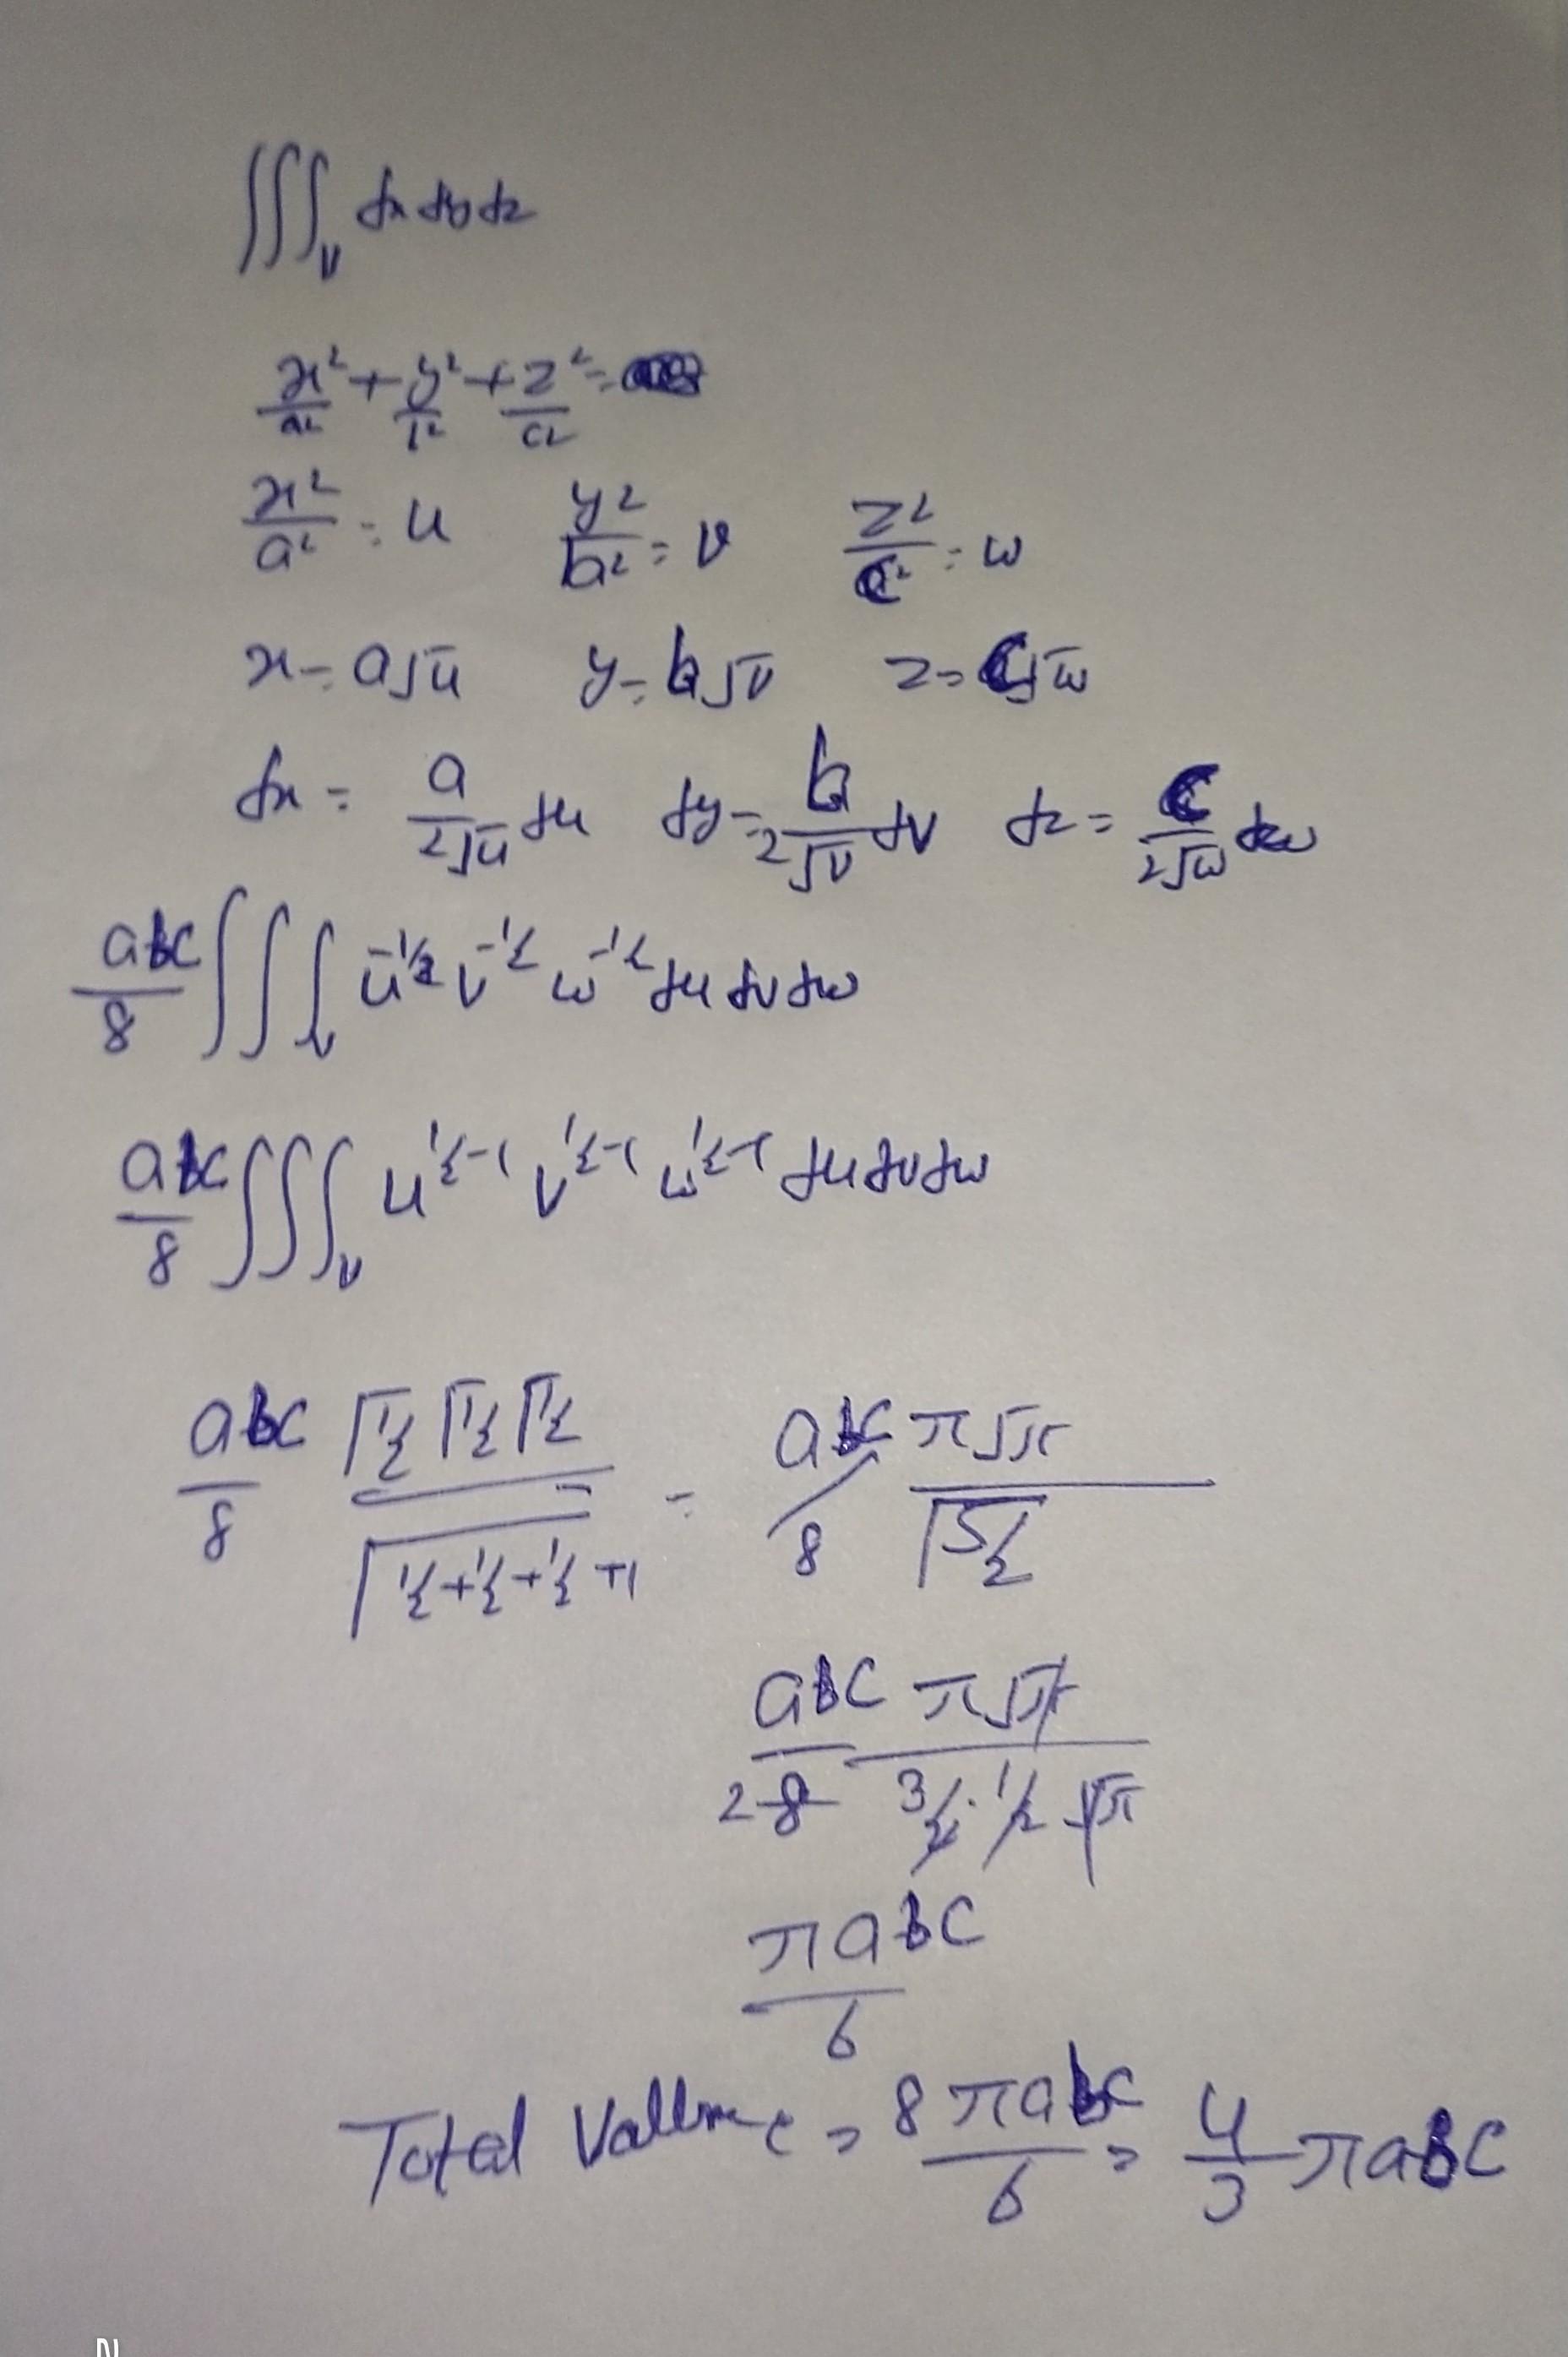 ∫∫∫_V dx dy dz
x²/a² + y²/b² + z²/c² =
x²/a² = u y²/b² = v z²/c² = w
x = a√u y = b√v z = c√w
dx = a/2√u du dy = b/2√v dv dz = c/2√w dw
abc/8 ∫∫∫_V u^-1/2 v^-1/2 w^-1/2 du dv dw
abc/8 ∫∫∫_V u^1/2-1 v^1/2-1 w^1/2-1 du dv dw
abc/8 Γ1/2 Γ1/2 Γ1/2 / Γ1/2+1/2+1/2+1 = abc/8 π√π / Γ5/2
abc/28 π√π / 3/2·1/2 √π
πabc/6
Total Vallume = 8πabc/6 = 4/3 πabc
N